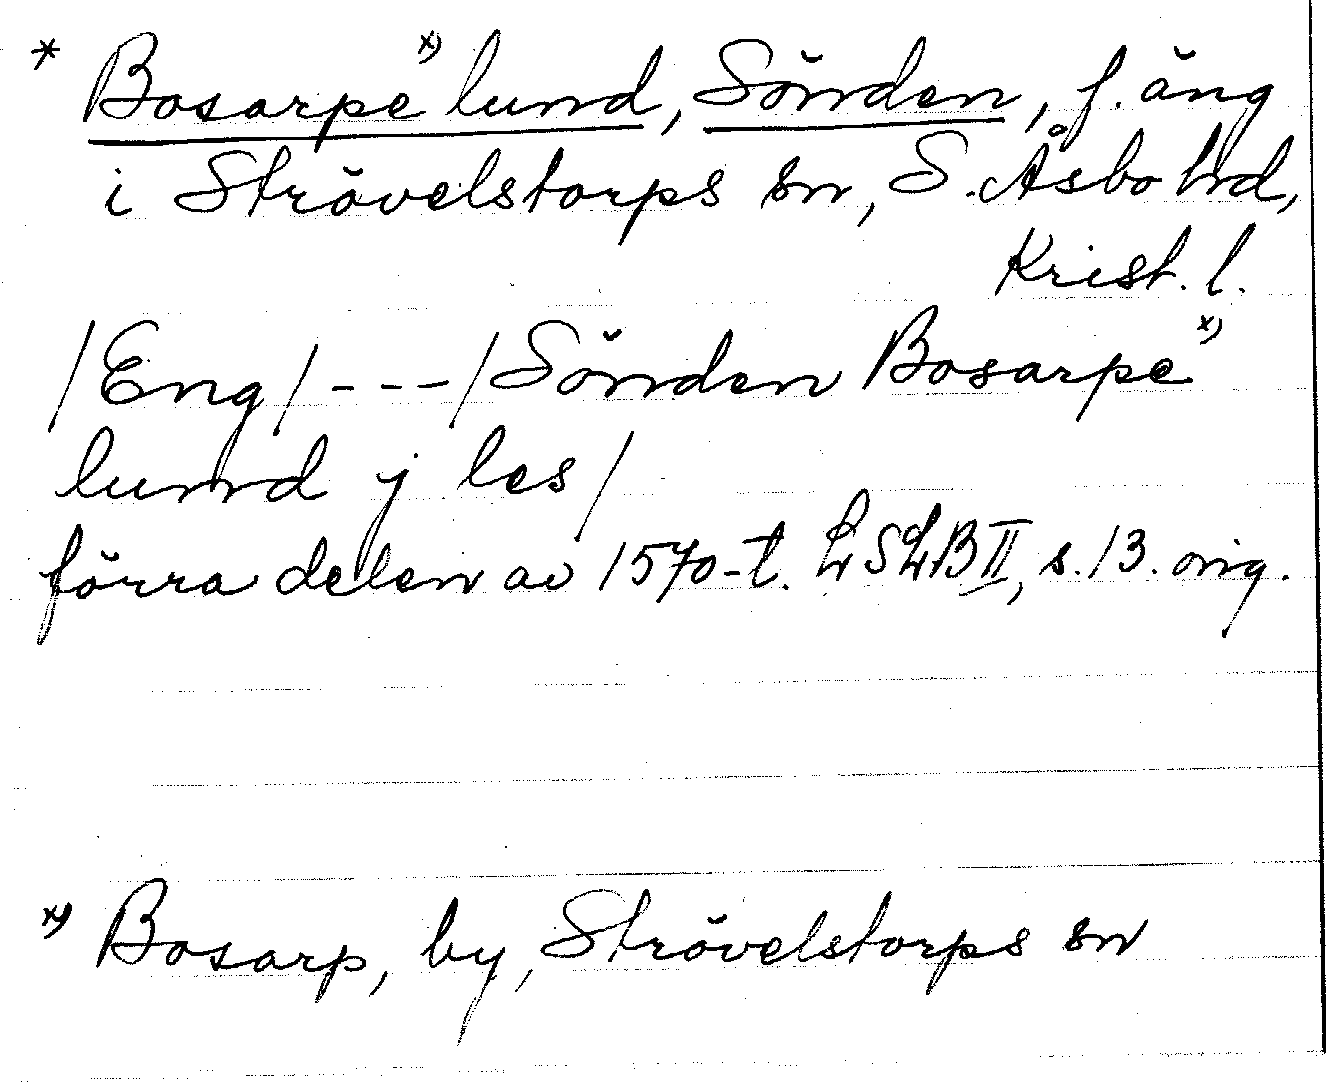 * Bosarpe x) lund, Sönden, f. äng
i Strövelstorps sn, S. Åsbo hd,
Krist. l.
/Eng/---/Sönden Bosarpe x)
lund j les/
förra delen av 1570-t. LSLB II, s. 13. orig.
x) Bosarp, by, Strövelstorps sn